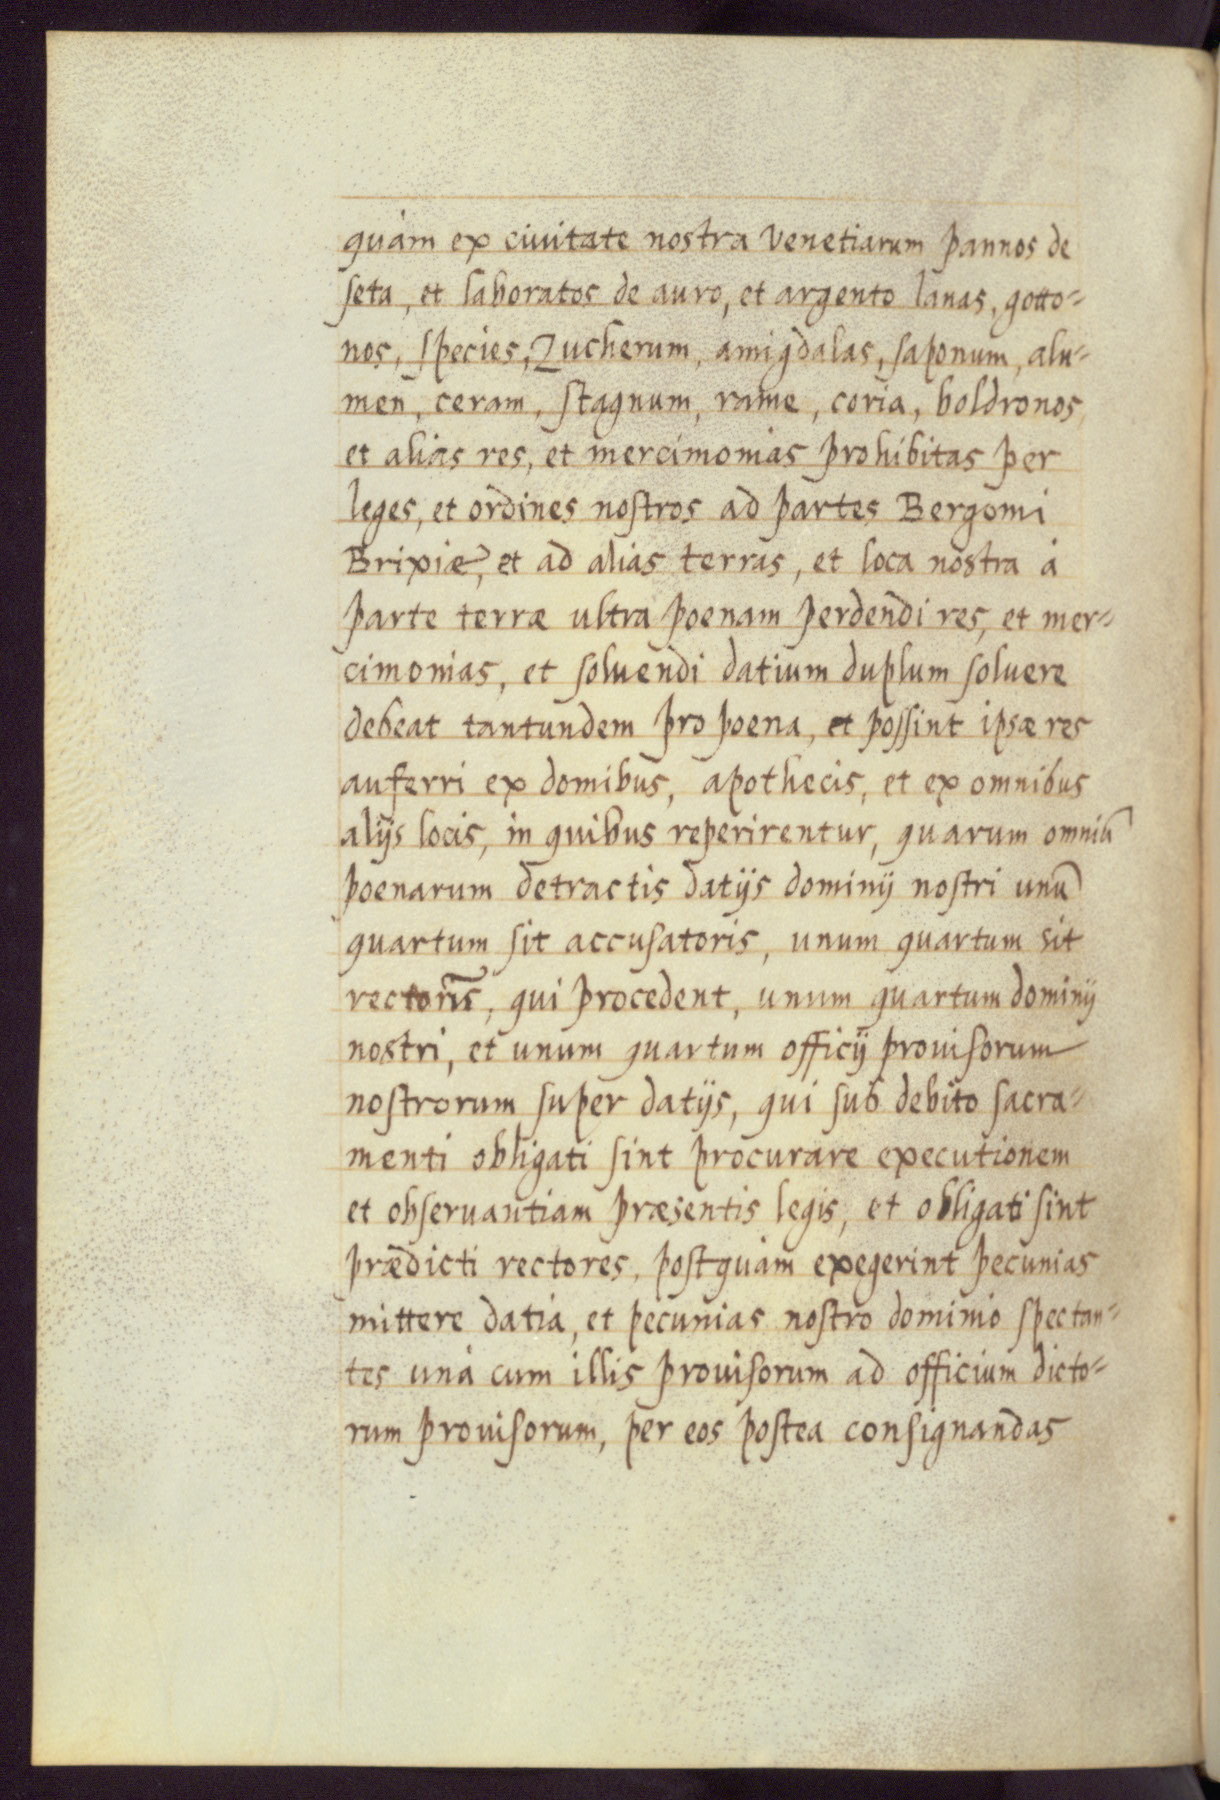 quàm ex ciuitate nostra Venetiarum pannos de
seta, et laboratos de auro, et argento lanas, gotto=
nos, species, Zucherum, amigdalas, saponum, alu=
men, ceram, stagnum, rame, coria, boldronos,
et alias res, et mercimonias prohibitas per
leges, et ordines nostros ad partes Bergomi
Brixiæ, et ad alias terras, et loca nostra à
parte terræ ultra poenam perdendi res, et mer=
cimonias, et soluendi datium duplum soluere
debeat tantundem pro poena, et possint ipsæ res
auferri ex domibus, apothecis, et ex omnibus
alijs locis, in quibus reperirentur, quarum omniū
poenarum detractis datijs dominij nostri unū
quartum sit accusatoris, unum quartum sit
rectoris, qui procedent, unum quartum dominij
nostri, et unum quartum officij prouisorum
nostrorum super datijs, qui sub debito sacra=
menti obligati sint procurare executionem
et obseruantiam præsentis legis, et obligati sint
prædicti rectores, postquàm exegerint pecunias
mittere datia, et pecunias nostro dominio spectan=
tes unà cum illis prouisorum ad officium dicto=
rum prouisorum, per eos postea consignandas